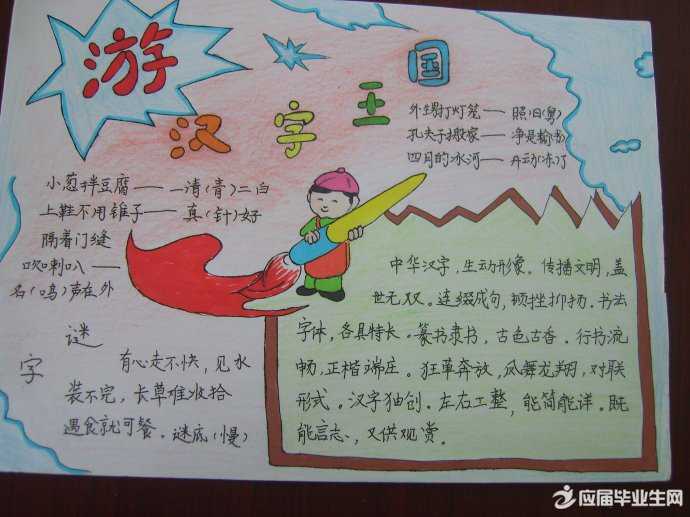 游
汉字王国
外甥打灯笼——照旧(舅)
孔夫子搬家——净是输(书)
四月的冰河——开动(冻)了
小葱拌豆腐——一清(青)二白
上鞋不用锥子——真(针)好
隔着门缝
吹喇叭——
名(鸣)声在外
谜
字
有心走不快，见水
装不完，长草难收拾
遇食就可餐。谜底(慢)
中华汉字，生动形象。传播文明，盖
世无双。连缀成句，顿挫抑扬。书法
字体，各具特长。篆书隶书，古色古香。行书流
畅，正楷端庄。狂草奔放，凤舞龙翔，对联
形式。汉字独创。左右工整，能简能详。既
能言志、又供观赏。
应届毕业生网